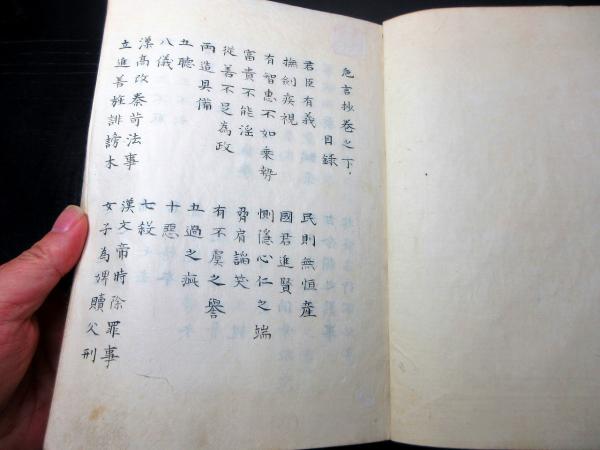 危言抄巻之下
目録
君臣有義
民則無恒産
撫劍疾視
國君進賢
有智恵不如乗勢
惻隠心仁之端
富貴不能淫
脅肩諂笑
従善不足為政
有不虞之譽
両造具備
五過之疵
五聴
十惡
八儀
七殺
漢高改秦苛法事
漢文帝時除罪事
立進善旌誹謗木
女子為婢贖父刑